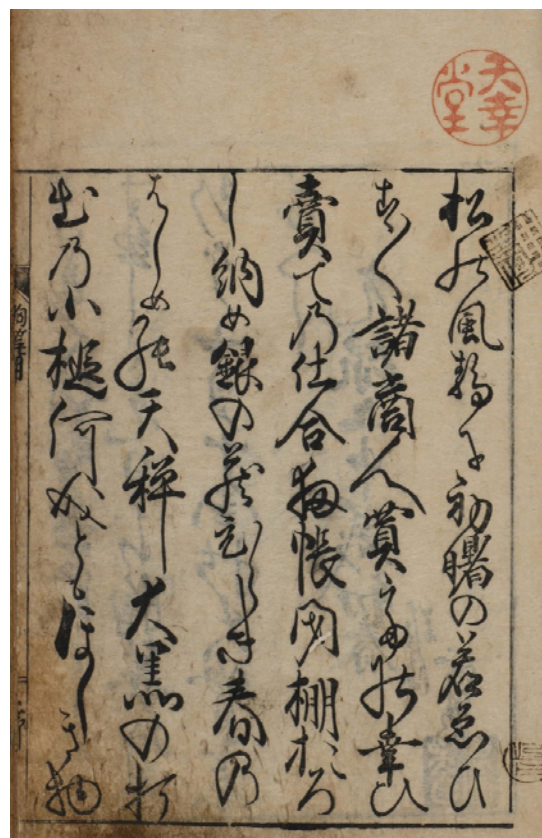 天幸堂
松の風静に初曙の若ゑひ
す〳〵諸商人買ての幸ひ
賣ての仕合扨帳閉棚おろ
し納め銀の蔵ひらき春の
はしめの天秤大黒の打
出の小槌何成ともほしき物